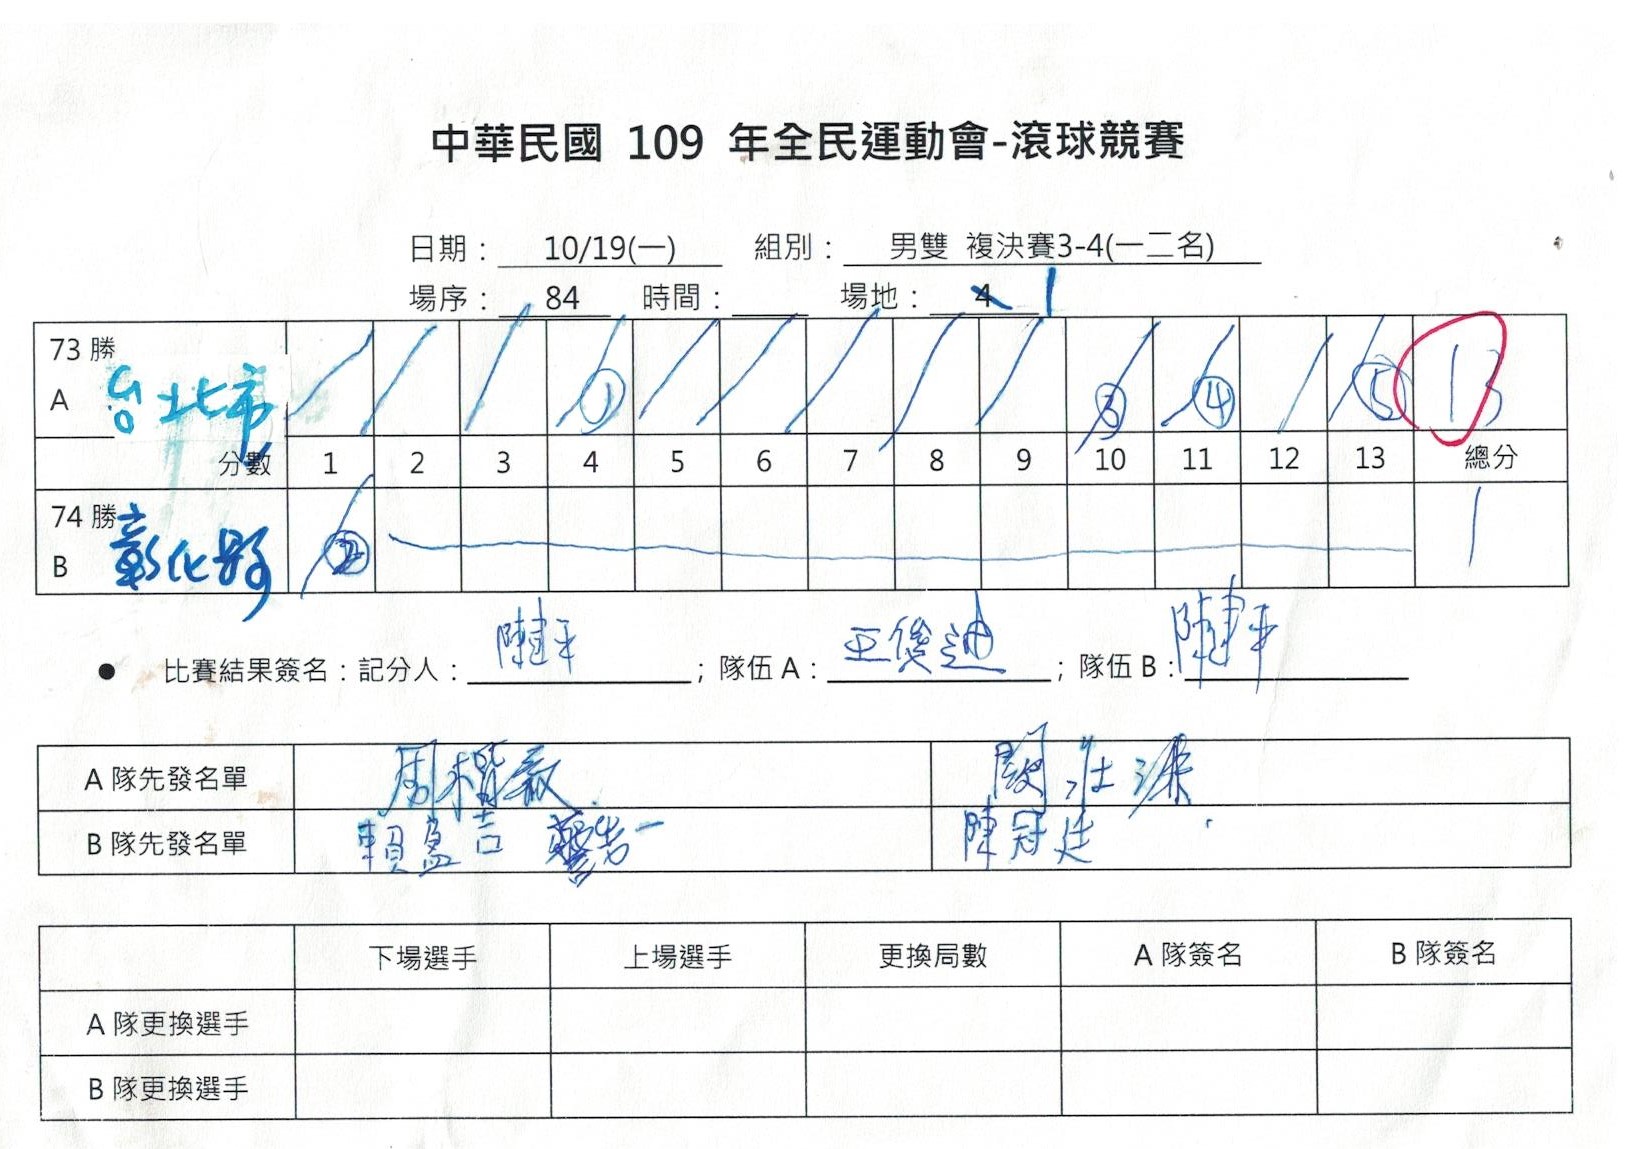 中華民國 109 年全民運動會-滾球競賽
日期： 10/19(一) 組別： 男雙 複決賽3-4(一二名)
場序： 84 時間： 場地： 4 1
73 勝
A 台北市 ① ③ ④ ⑤ 13
分數 1 2 3 4 5 6 7 8 9 10 11 12 13 總分
74 勝
B 彰化縣 ② 1
● 比賽結果簽名：記分人：陳建平；隊伍 A：王俊迪；隊伍 B：陳建平
A 隊先發名單 周 壯
B 隊先發名單 賴盈吉 警告一 陳冠廷
下場選手 上場選手 更換局數 A 隊簽名 B 隊簽名
A 隊更換選手
B 隊更換選手